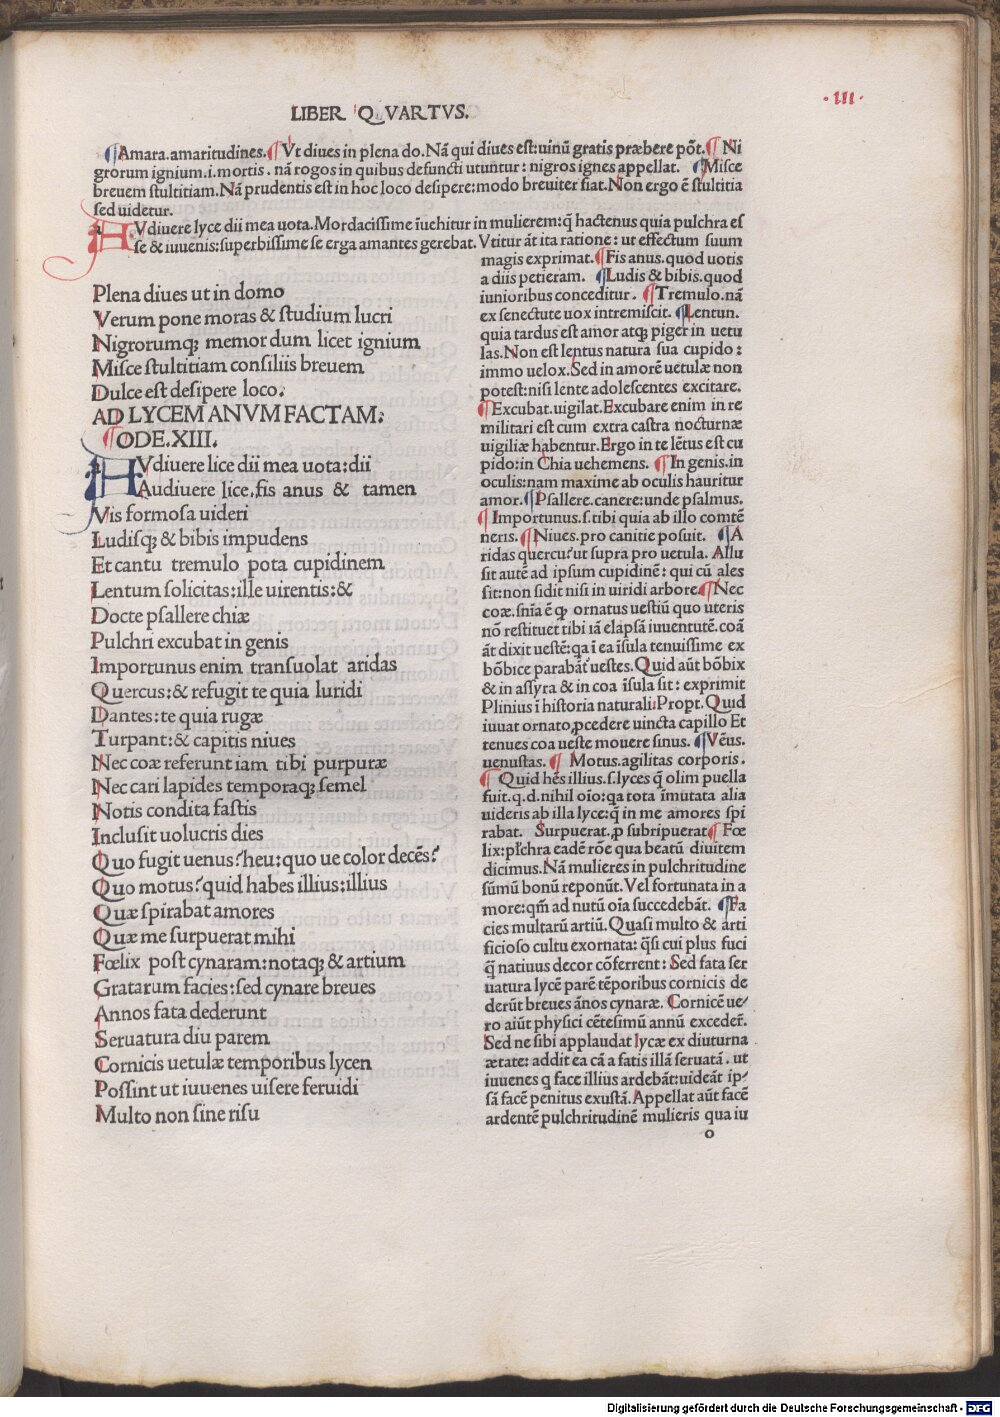 LIBER QVARTVS.
·III·
¶Amara.amaritudines.¶Vt diues in plena do.Nã qui diues est:uinũ gratis præbere põt.¶Ni
grorum ignium.i.mortis.nã rogos in quibus defuncti utuntur:nigros ignes appellat. ¶Misce
breuem stultitiam.Nã prudentis est in hoc loco desipere:modo breuiter fiat.Non ergo ẽ stultitia
sed uidetur.
AVdiuere lyce dii mea uota.Mordacissime ĩuehitur in mulierem:q̃ hactenus quia pulchra es
se & iuuenis:superbissime se erga amantes gerebat.Vtitur ãt ita ratione:ut effectum suum
Plena diues ut in domo
Verum pone moras & studium lucri
Nigrorumq; memor dum licet ignium
Misce stultitiam consiliis breuem
Dulce est desipere loco.
AD LYCEM ANVM FACTAM:
¶ODE.XIII.
AVdiuere lice dii mea uota:dii
Audiuere lice.fis anus & tamen
Vis formosa uideri
Ludisq; & bibis impudens
Et cantu tremulo pota cupidinem
Lentum solicitas:ille uirentis:&
Docte psallere chiæ
Pulchri excubat in genis
Importunus enim transuolat aridas
Quercus:& refugit te quia luridi
Dantes:te quia rugæ
Turpant:& capitis niues
Nec coæ referunt iam tibi purpuræ
Nec cari lapides temporaq; semel
Notis condita fastis
Inclusit uolucris dies
Quo fugit uenus?heu:quo ue color decẽs?
Quo motus?quid habes illius:illius
Quæ spirabat amores
Quæ me surpuerat mihi
Fœlix post cynaram:notaq; & artium
Gratarum facies:sed cynare breues
Annos fata dederunt
Seruatura diu parem
Cornicis uetulæ temporibus lycen
Possint ut iuuenes uisere feruidi
Multo non sine risu
magis exprimat.¶Fis anus.quod uotis
a diis petieram. ¶Ludis & bibis.quod
iunioribus conceditur. ¶Tremulo.nã
ex senectute uox intremiscit.¶Lentun.
quia tardus est amor atq; piger in uetu
las.Non est lentus natura sua cupido:
immo uelox.Sed in amorẽ uetulæ non
potest:nisi lente adolescentes excitare.
¶Excubat.uigilat.Excubare enim in re
militari est cum extra castra nocturnæ
uigiliæ habentur.Ergo in te lẽtus est cu
pido:in Chia uehemens. ¶In genis.in
oculis:nam maxime ab oculis hauritur
amor.¶Psallere.canere:unde psalmus.
¶Importunus.s.tibi quia ab illo comtẽ
neris. ¶Niues.pro canitie posuit. ¶A
ridas quercus.ut supra pro uetula. Allu
sit autẽ ad ipsum cupidinẽ:qui cũ ales
sit:non sidit nisi in uiridi arbore.¶Nec
coæ.snĩa ẽ q ornatus uestiũ quo uteris
nõ restituet tibi iã elapsã iuuentutẽ.coã
ãt dixit uestẽ:qa ĩ ea ĩsula tenuissime ex
bõbice parabãt uestes.Quid aũt bõbix
& in assyra & in coa ĩsula sit:exprimit
Plinius ĩ historia naturali:Propt.Quid
iuuat ornato,pcedere uincta capillo Et
tenues coa ueste mouere sinus. ¶Vẽus.
uenustas.¶ Motus.agilitas corporis.
¶ Quid hẽs illius.s.lyces q̃ olim puella
fuit.q.d.nihil oĩo:qa tota ĩmutata alia
uideris ab illa lyce:q̃ in me amores spi
rabat. Surpuerat.p subripuerat¶Fœ
lix:pl̃chra eadẽ rõe qua beatũ diuitem
dicimus.Nã mulieres in pulchritudine
sũmũ bonũ reponũt.Vel fortunata in a
more:qm̃ ad nutũ oĩa succedebãt. ¶Fa
cies multarũ artiũ.Quasi multo & arti
ficioso cultu exornata:q̃si cui plus fuci
q̃ natiuus decor cõferrent:Sed fata ser
uatura lycẽ parẽ tẽporibus cornicis de
derũt breues ãnos cynaræ. Cornicẽ ue/
ro aiũt physici cẽtesimũ annũ excederẽ.
Sed ne sibi applaudat lycæ ex diuturna
ætate:addit ea cã a fatis illã seruatã.ut
iuuenes q face illius ardebãt:uideãt ip/
sã facẽ penitus exustã.Appellat aũt facẽ
ardentẽ pulchritudinẽ mulieris qua iu
o
Digitalisierung gefördert durch die Deutsche Forschungsgemeinschaft - DFG